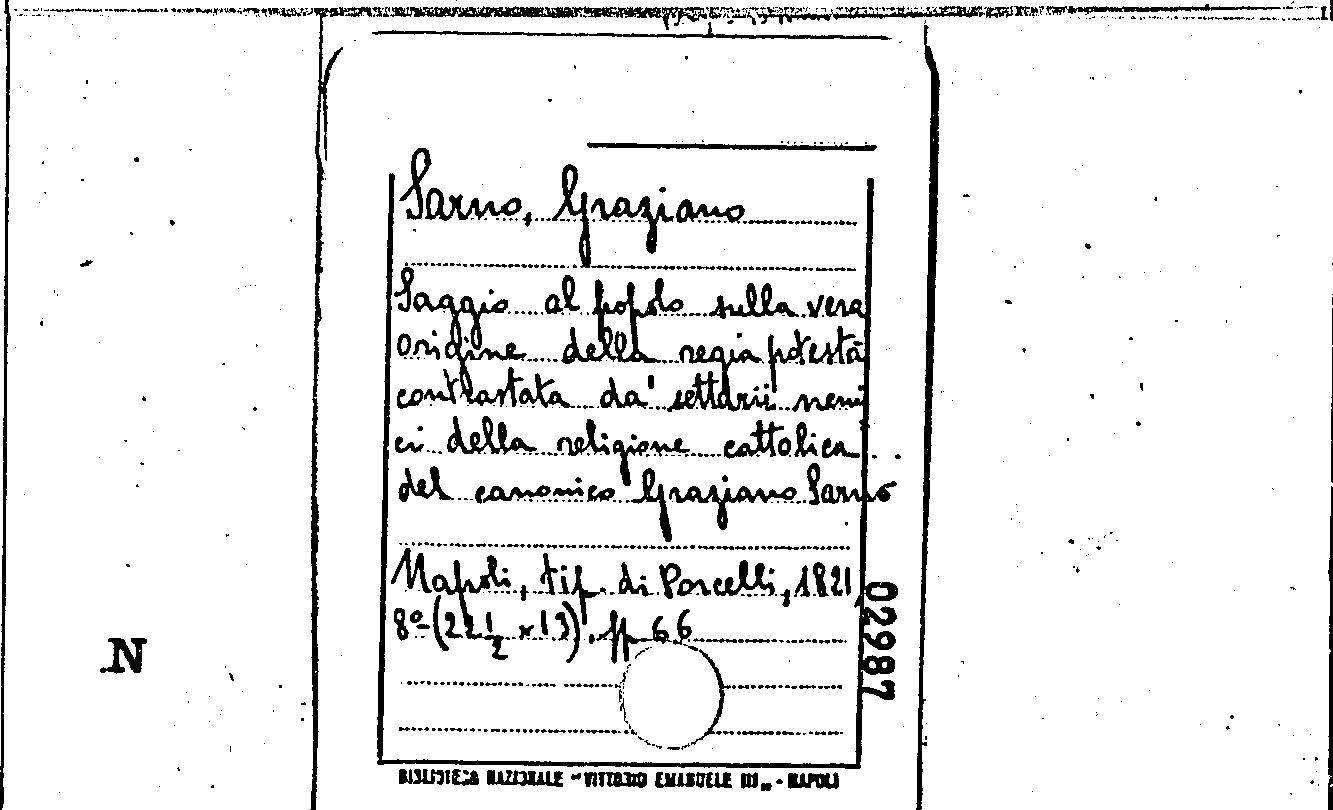 Sarno, Graziano
Saggio al popolo sulla vera
origine della regia potestà
contrastata da' settarii nemi
ci della religione cattolica
del canonico Graziano Sarno
Napoli, tip. di Porcelli, 1821,
8º-(22 1/2 x 13). pp 66
02987
N
BIBLIOTECA NAZIONALE "VITTORIO EMANUELE III„ - NAPOLI